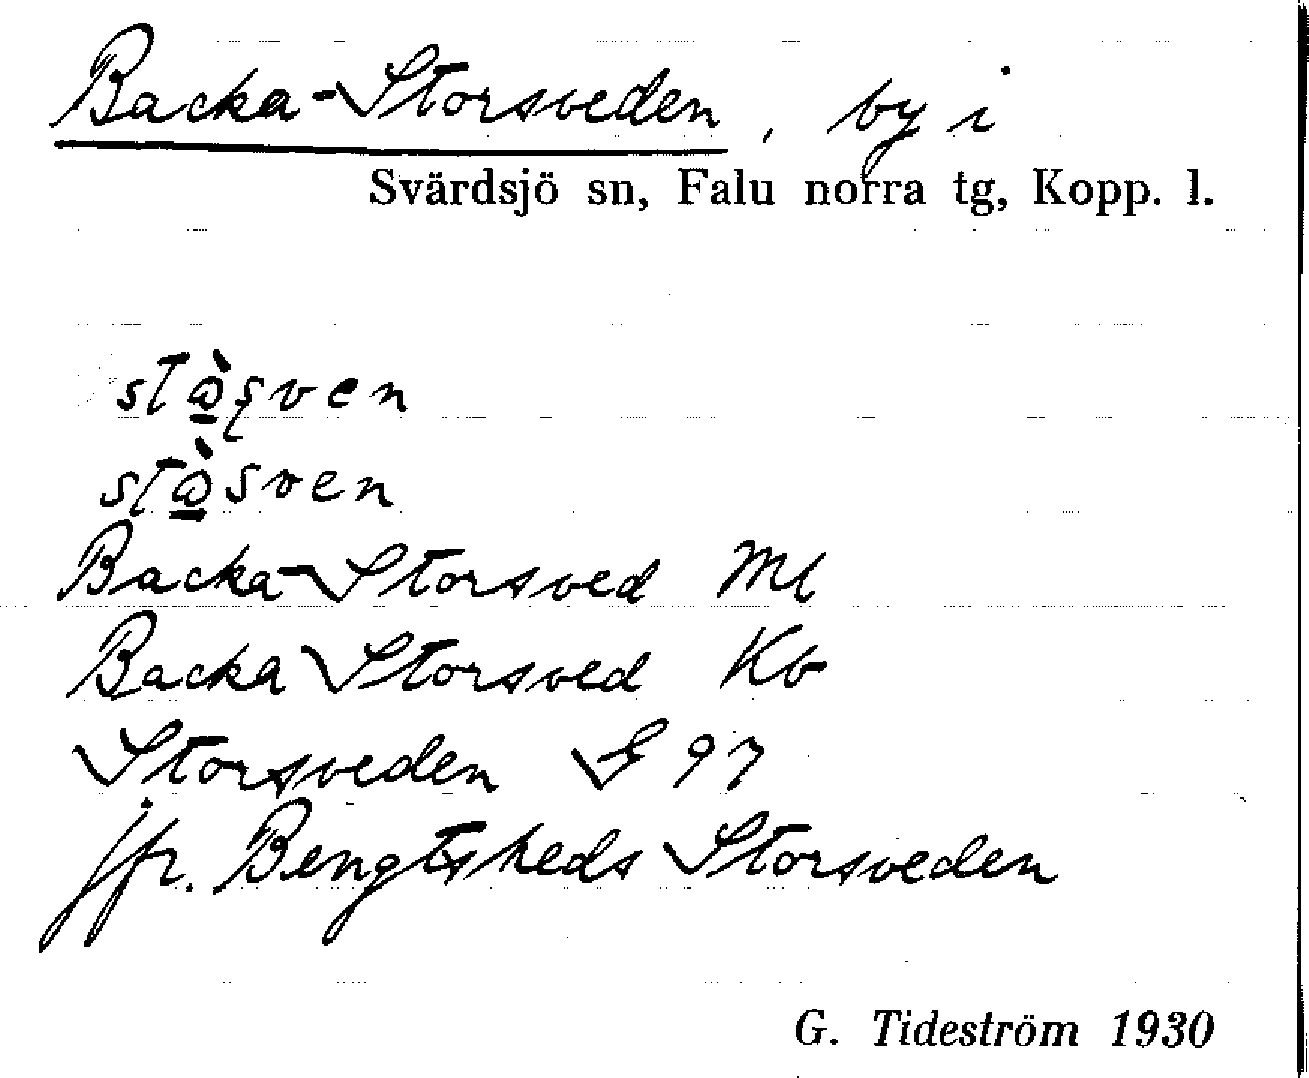 Backa-Storsveden, by i
Svärdsjö sn, Falu norra tg, Kopp. l.
Backa-Storsved Ml
Backa Storsved Kb
Storsveden G 97
jfr. Bengtsheds Storsveden
G. Tideström 1930